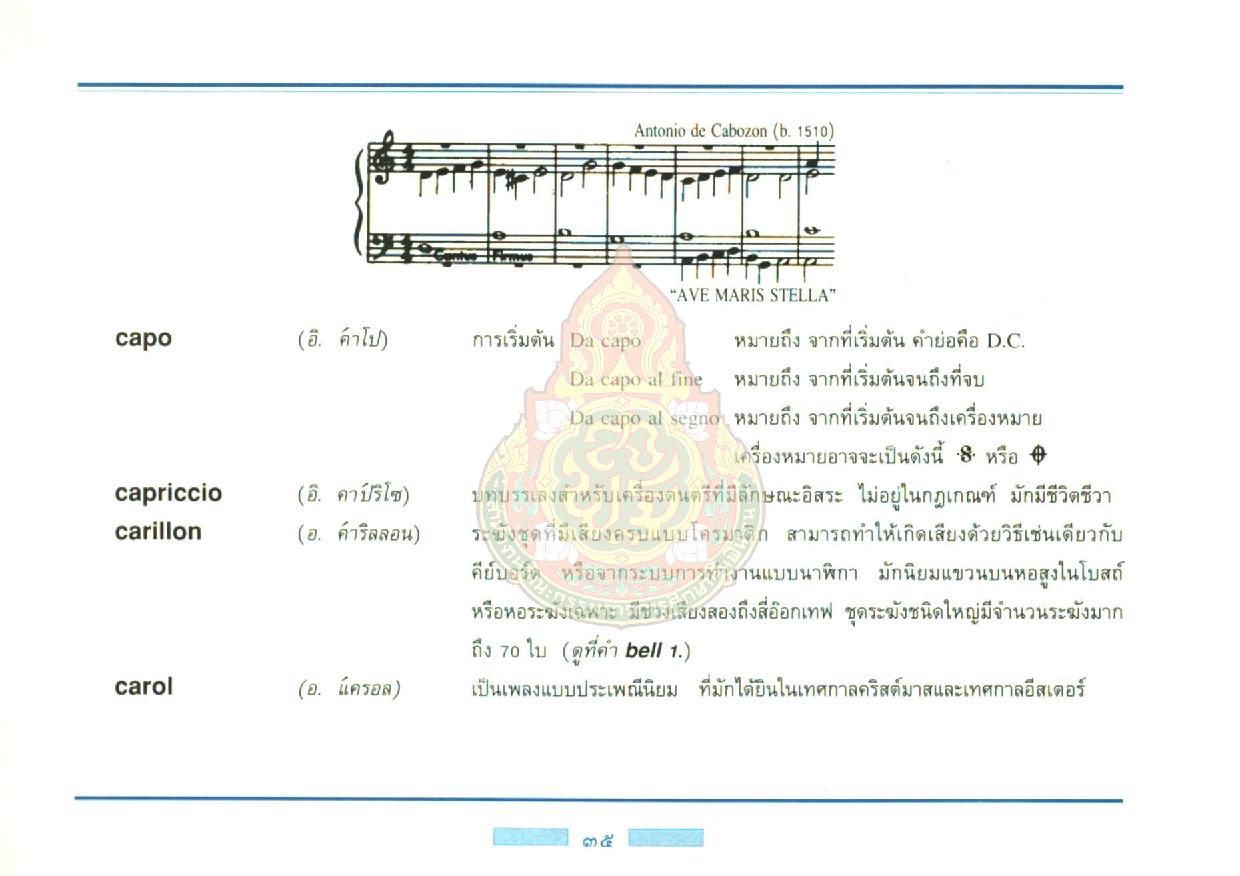 Antonio de Cabozon (b. 1510)
Cantus Firmus
“AVE MARIS STELLA”
capo (อิ. ค้าโป) การเริ่มต้น Da capo หมายถึง จากที่เริ่มต้น คำย่อคือ D.C.
Da capo al fine หมายถึง จากที่เริ่มต้นจนถึงที่จบ
Da capo al segno หมายถึง จากที่เริ่มต้นจนถึงเครื่องหมาย
เครื่องหมายอาจจะเป็นดังนี้ 𝄋 หรือ 𝄌
capriccio (อิ. คาปริโช) บทบรรเลงสำหรับเครื่องดนตรีที่มีลักษณะอิสระ ไม่อยู่ในกฎเกณฑ์ มักมีชีวิตชีวา
carillon (อ. ค้าริลลอน) ระฆังชุดที่มีเสียงครบแบบโครมาติก สามารถทำให้เกิดเสียงด้วยวิธีเช่นเดียวกับ
คีย์บอร์ด หรือจากระบบการทำงานแบบนาฬิกา มักนิยมแขวนบนหอสูงในโบสถ์
หรือหอระฆังเฉพาะ มีช่วงเสียงสองถึงสี่อ๊อกเทฟ ชุดระฆังชนิดใหญ่มีจำนวนระฆังมาก
ถึง 70 ใบ (ดูที่คำ bell 1.)
carol (อ. แค้รอล) เป็นเพลงแบบประเพณีนิยม ที่มักได้ยินในเทศกาลคริสต์มาสและเทศกาลอีสเตอร์
๓๕